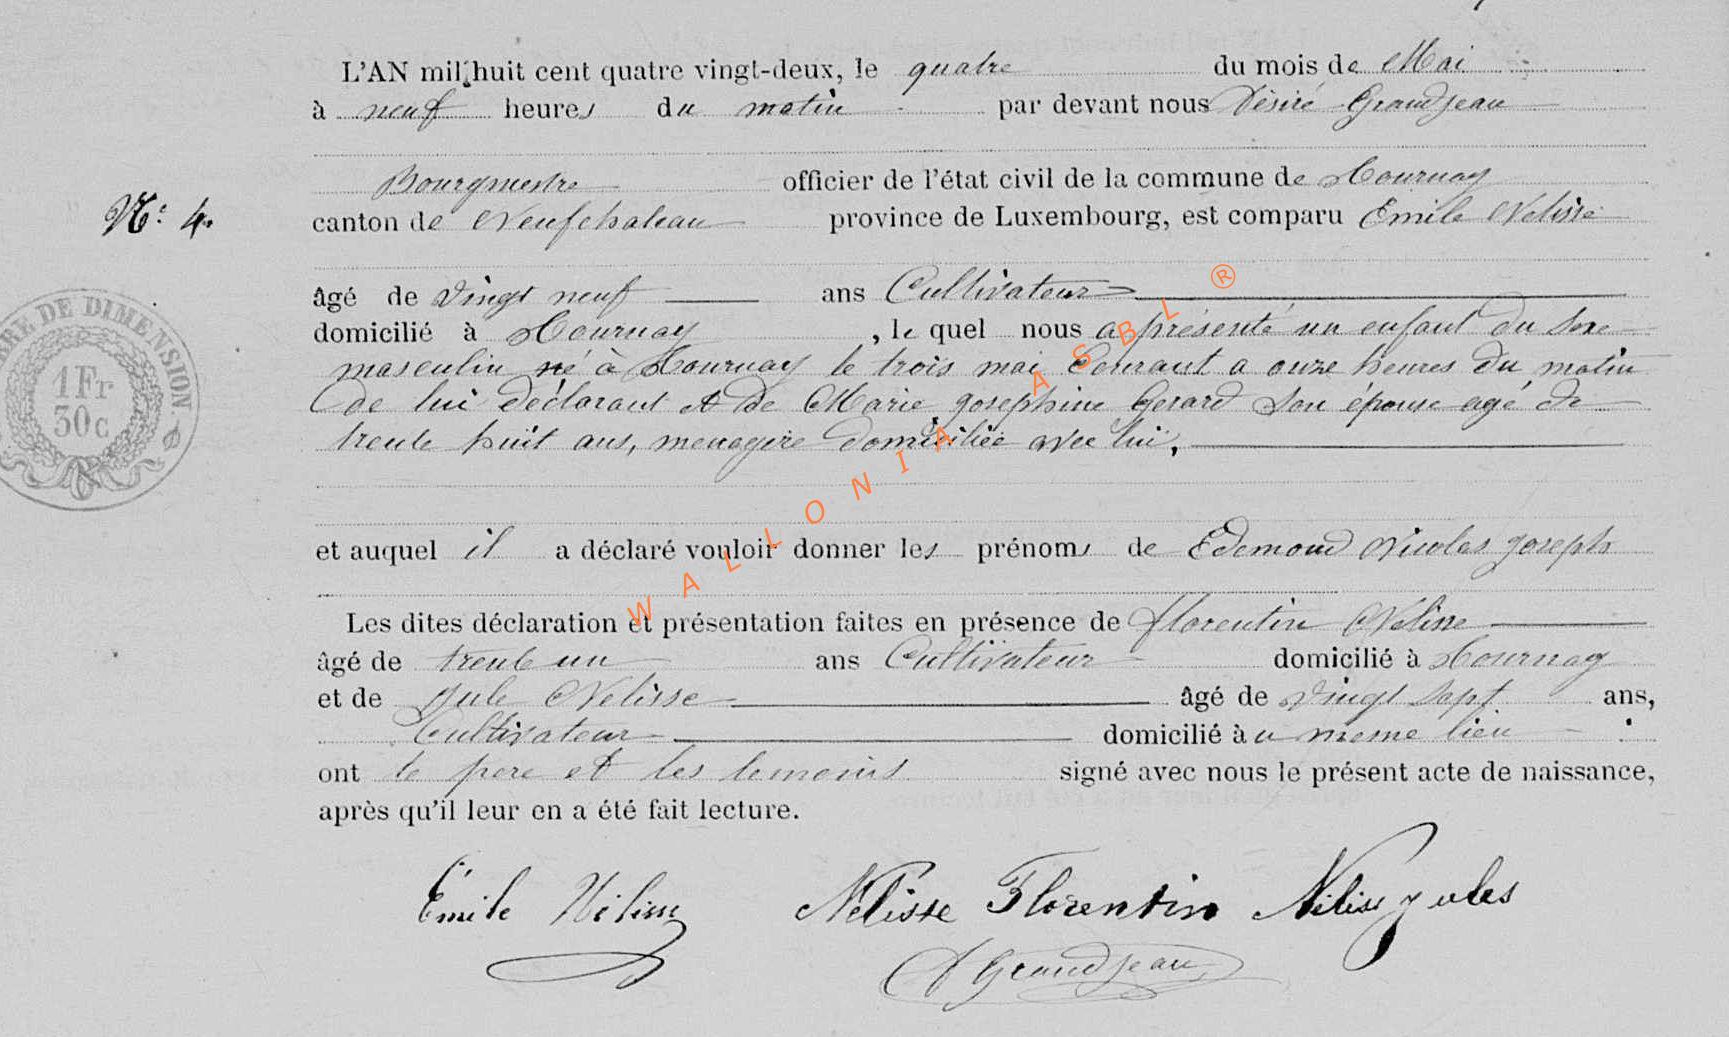 L'AN mil huit cent quatre vingt-deux, le quatre du mois de Mai
à neuf heures du matin par devant nous Désiré Grandjean
Bourgmestre officier de l'état civil de la commune de Tournay
N° 4.
canton de Neufchateau province de Luxembourg, est comparu Emile Nelisse
âgé de vingt neuf ans Cultivateur
domicilié à Tournay, le quel nous a présenté un enfant du sexe
masculin né à Tournay le trois mai Courant a onze heures du matin
de lui déclarant et de Marie Josephine Gerard son épouse agé de
trente huit ans, menagère domiciliée avec lui,
et auquel il a déclaré vouloir donner les prénoms de Edemond Nicolas Joseph
Les dites déclaration et présentation faites en présence de Florentin Nelisse
âgé de trente un ans Cultivateur domicilié à Tournay
et de Jule Nelisse âgé de vingt sept ans,
Cultivateur domicilié au meme lieu
ont le pere et les temoins signé avec nous le présent acte de naissance,
après qu'il leur en a été fait lecture.
Émile Nélisse Nelisse Florentin Nelisse Jules
D Grandjean
TIMBRE DE DIMENSION
1Fr
30c
WALLONIA ASBL ®